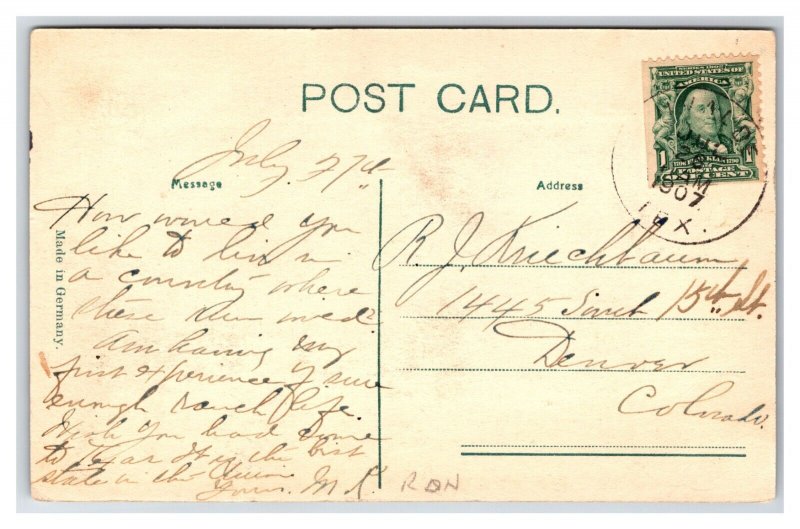 POST CARD.
July 27th
Message
Address
Made in Germany.
How would you
like to live in
a country where
these run
Am having my
first experience of sure
enough ranch life.
Wish you had come
to Texas It is the best
state in the Union
Yours. M. K.
R. J. Kriechbaum
1445 South 15th St.
Denver
Colorado.
RDN
SERIES 1902
UNITED STATES OF
AMERICA
1 FRANKLIN 1790 1
POSTAGE
ONE CENT
M
1907
TEX.